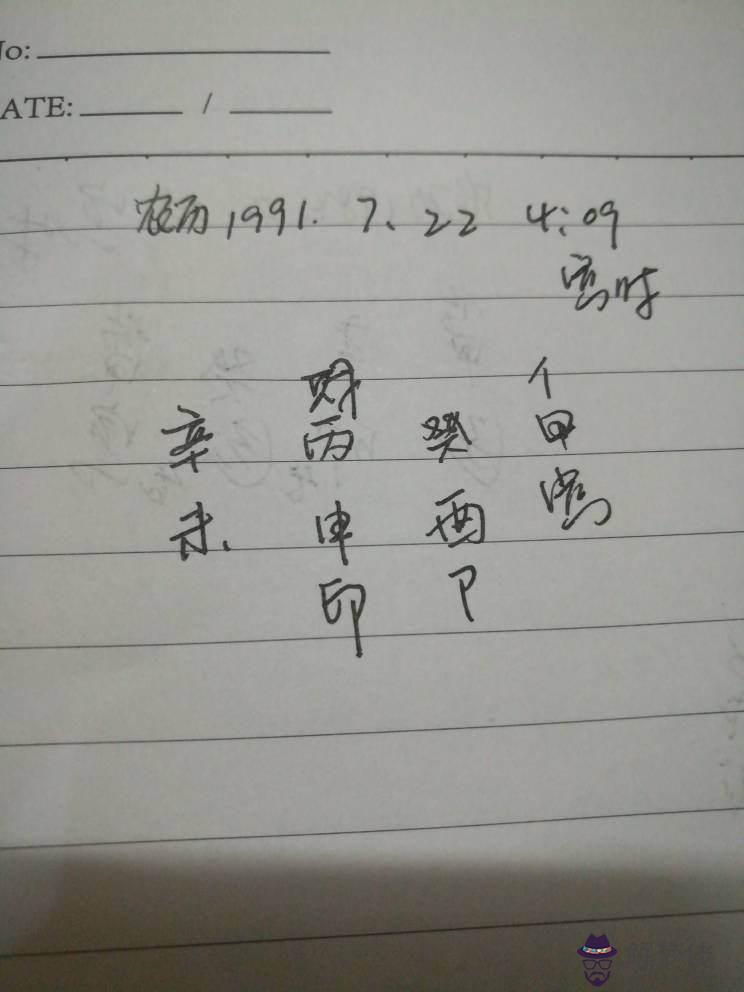 No:
DATE: /
农历1991.7.22 4:09
寅时
财 亻
辛 丙 癸 甲
未、 申 酉 寅
印 卩